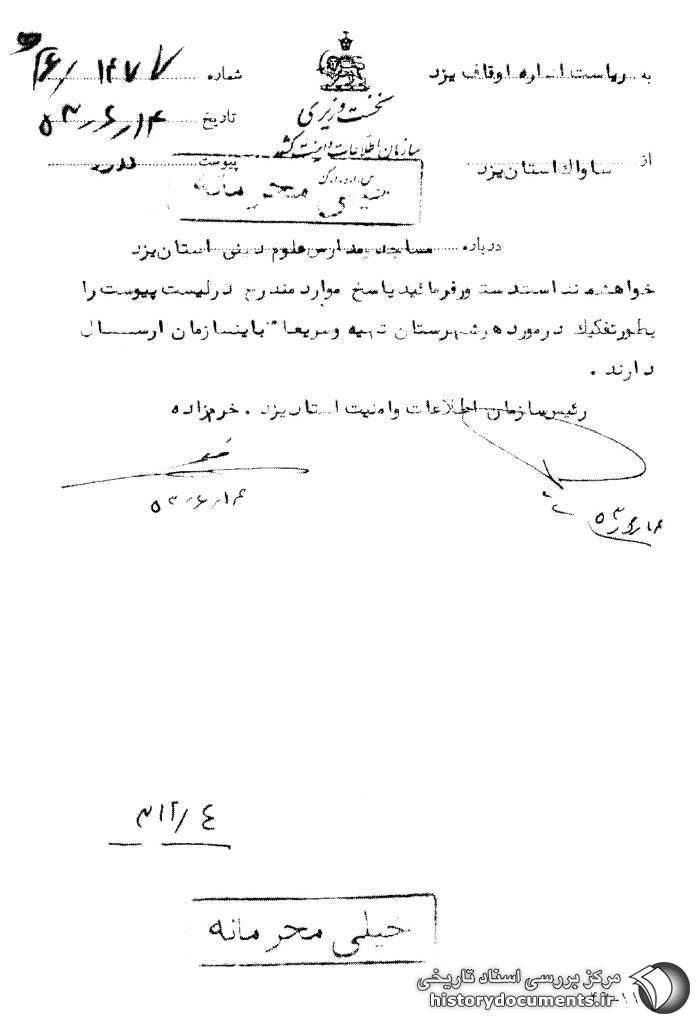 به ریاست اداره اوقاف یزد
از ساواک استان یزد
نخست وزیری
سازمان اطلاعات و امنیت کشور
شماره
تاریخ ۵۳٫۶٫۱۴
پیوست دارد
خیلی محرمانه
درباره مساجد و مدارس علوم دینی استان یزد
خواهشمند است دستور فرمائید پاسخ موارد مندرج در لیست پیوست را
بطور تفکیک در مورد هر شهرستان تهیه و سریعا" باینسازمان ارسال
دارند .
رئیس سازمان اطلاعات و امنیت استان یزد . خرم زاده
۵۳٫۶٫۱۴
خیلی محرمانه
مرکز بررسی اسناد تاریخی
historydocuments.ir